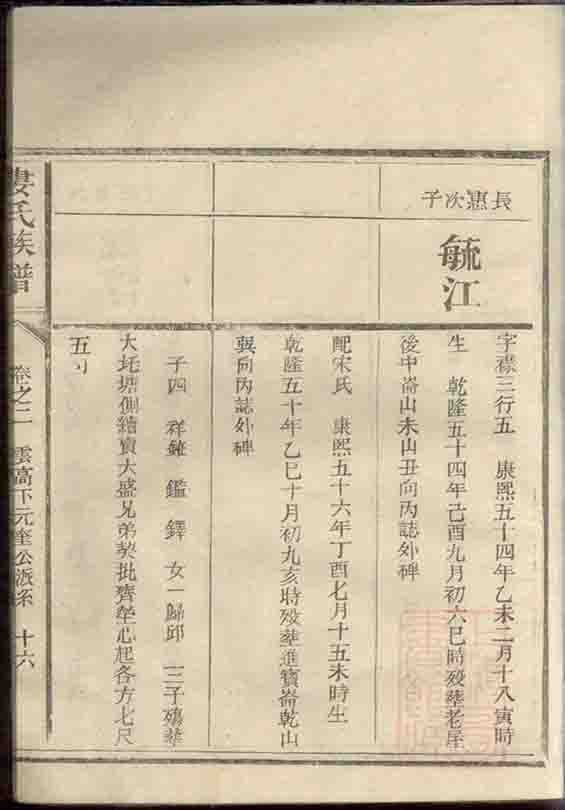 長惠次子
毓江
字襟三行五 康熙五十四年乙未二月十八寅時
生 乾隆五十四年己酉九月初六巳時殁塟老屋
後中崙山未山丑向丙誌外碑
配宋氏 康熙五十六年丁酉七月十五未時生
乾隆五十年乙巳十月初九亥時殁塟進寳崙乾山
巽向丙誌外碑
子四 祥 鑑 鐸 女一歸邱 三子殤塟
大坵塘側續賣大盛兄弟契批齊塋心起各方七尺
五寸
婁氏族譜
卷之二 雲高下元奎公派系 十六